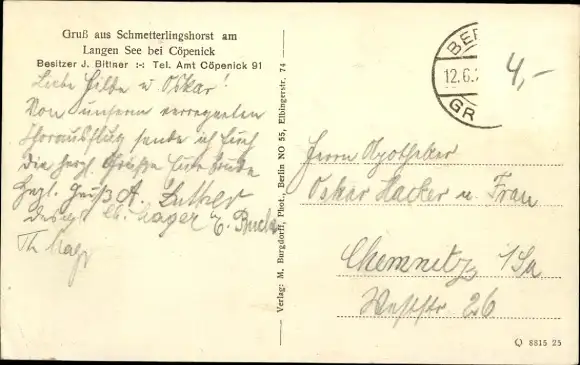 Gruß aus Schmetterlingshorst am
Langen See bei Cöpenick
Besitzer J. Bittner :-: Tel. Amt Cöpenick 91
Liebe Hilde u Oskar!
Von unserm verregneten
Chorausflug sende ich Euch
die herzl. Grüße Eure
Herzl. Gruß A. Luther
Th.
Verlag: M. Burgdorff, Phot., Berlin NO 55, Elbingerstr. 74
BER
12.6.
GR
4,-
Herrn Apotheker
Oskar Hacker u. Frau
Chemnitz i/Sa
Weststr 26
Q 8815 25